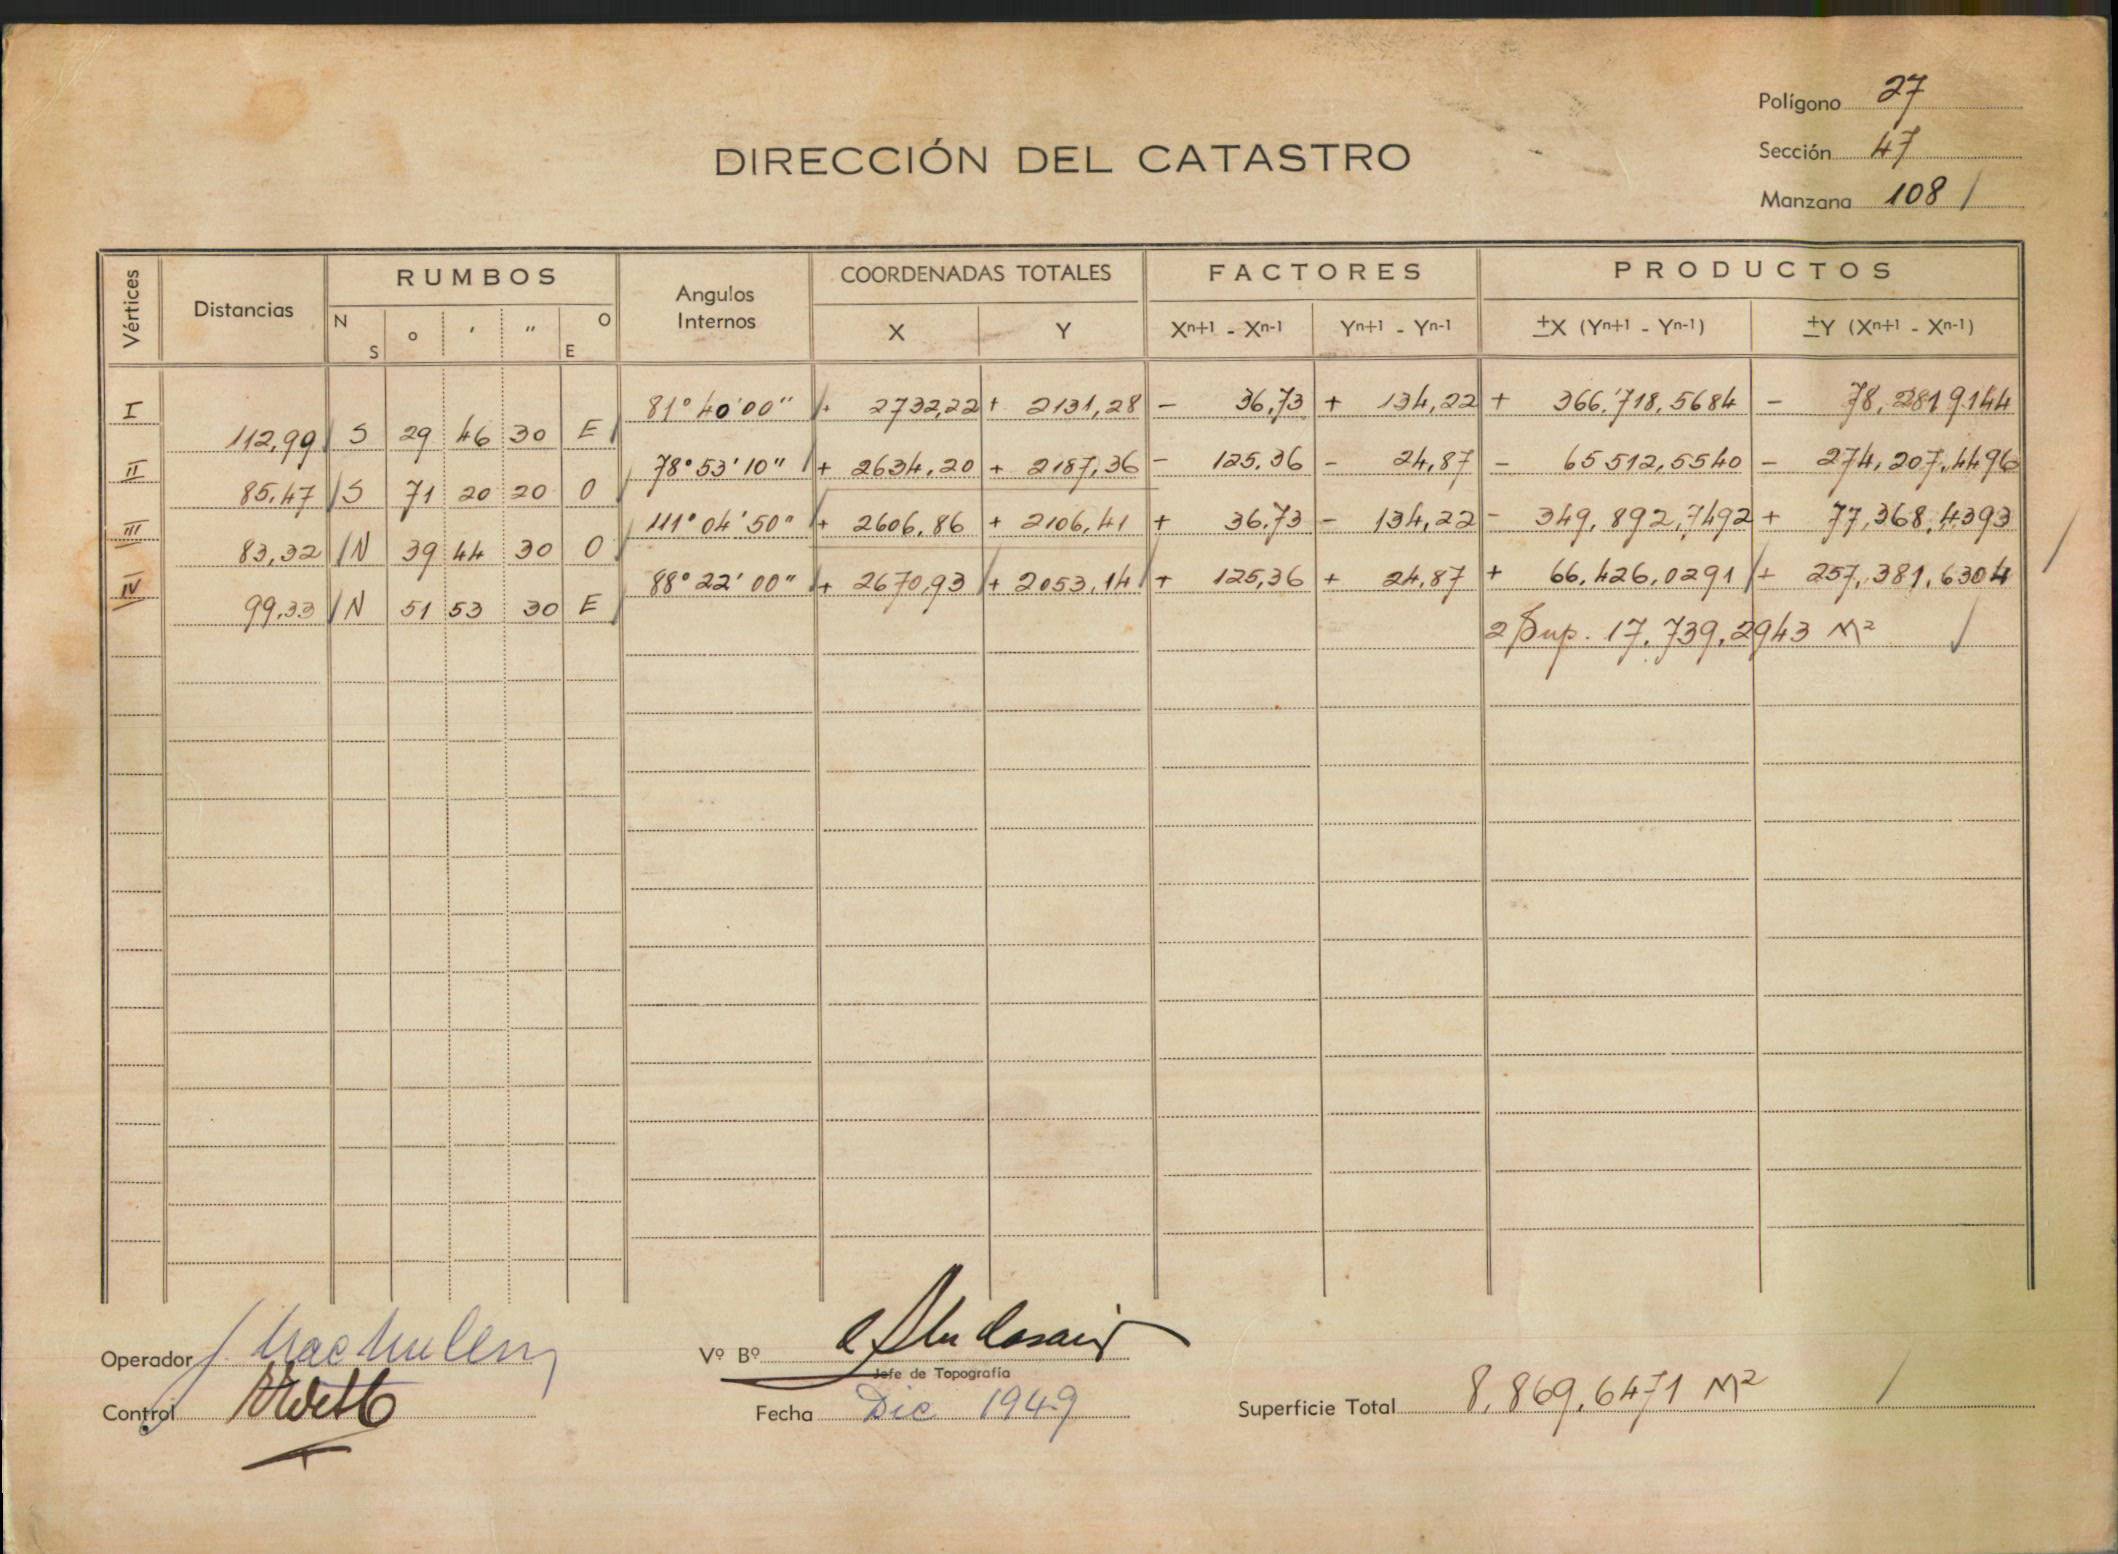 Polígono 27
DIRECCIÓN DEL CATASTRO
Sección 47
Manzana 108 /
Vértices Distancias RUMBOS Angulos Internos COORDENADAS TOTALES FACTORES PRODUCTOS
N S ° ' " O E X Y Xn+1 - Xn-1 Yn+1 - Yn-1 ±X (Yn+1 - Yn-1) ±Y (Xn+1 - Xn-1)
I 81° 40' 00" + 2732,22 + 2131,28 - 36,73 + 134,22 + 366.718,5684 - 78,281 9144
112,99 S 29 46 30 E
II 78° 53' 10" + 2634,20 + 2187,36 - 125.36 - 24,87 - 65 512,5540 - 274,207,4496
85.47 S 71 20 20 O
III 111° 04' 50" + 2606,86 + 2106,41 + 36.73 - 134,22 - 349,892,7492 + 77,368,4393
83,32 N 39 44 30 O
IV 88° 22' 00" + 2670,93 + 2053,14 + 125,36 + 24,87 + 66,426,0291 + 257,381,6304
99,33 N 51 53 30 E
2 Sup. 17.739,2943 M²
Operador
Vº Bº
Jefe de Topografía
Control
Fecha Dic 1949
Superficie Total 8,869,6471 M² /